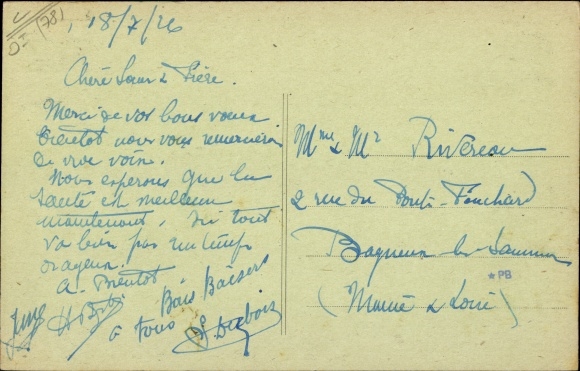 (78)
18/7/26
Chère Sœur & Frère.
Merci de vos bons vœux
bientôt nous vous remercierons
de vive voix.
Nous espérons que la
santé est meilleure
maintenant, ici tout
va bien par un temps
orageux.
A Bientôt
Bons Baisers
à tous
Dubois
Mme & Mr Rivereau
2 rue du Pont-Fouchard
Bagneux les Saumur
*PB
(Maine & Loire)